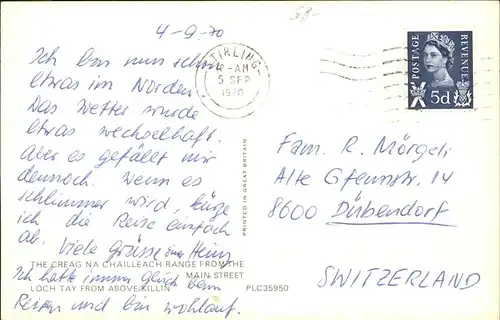 4-9-70
Ich bin nun schon
etwas im Norden
Das Wetter wurde
etwas wechselhaft.
Aber es gefällt mir
dennoch. Wenn es
schlimmer wird, kürze
ich die Reise einfach
ab. Viele Grüsse Heinz
THE CREAG NA CHAILLEACH RANGE FROM THE
MAIN STREET
Ich hatte immer Glück beim
LOCH TAY FROM ABOVE KILLIN PLC35950
Reisen und bin wohlauf.
PRINTED IN GREAT BRITAIN
58-
STIRLING
-AM
5 SEP
1970
POSTAGE
REVENUE
5d
Fam. R. Mörgeli
Alte Gfennstr. 14
8600 Dübendorf
SWITZERLAND